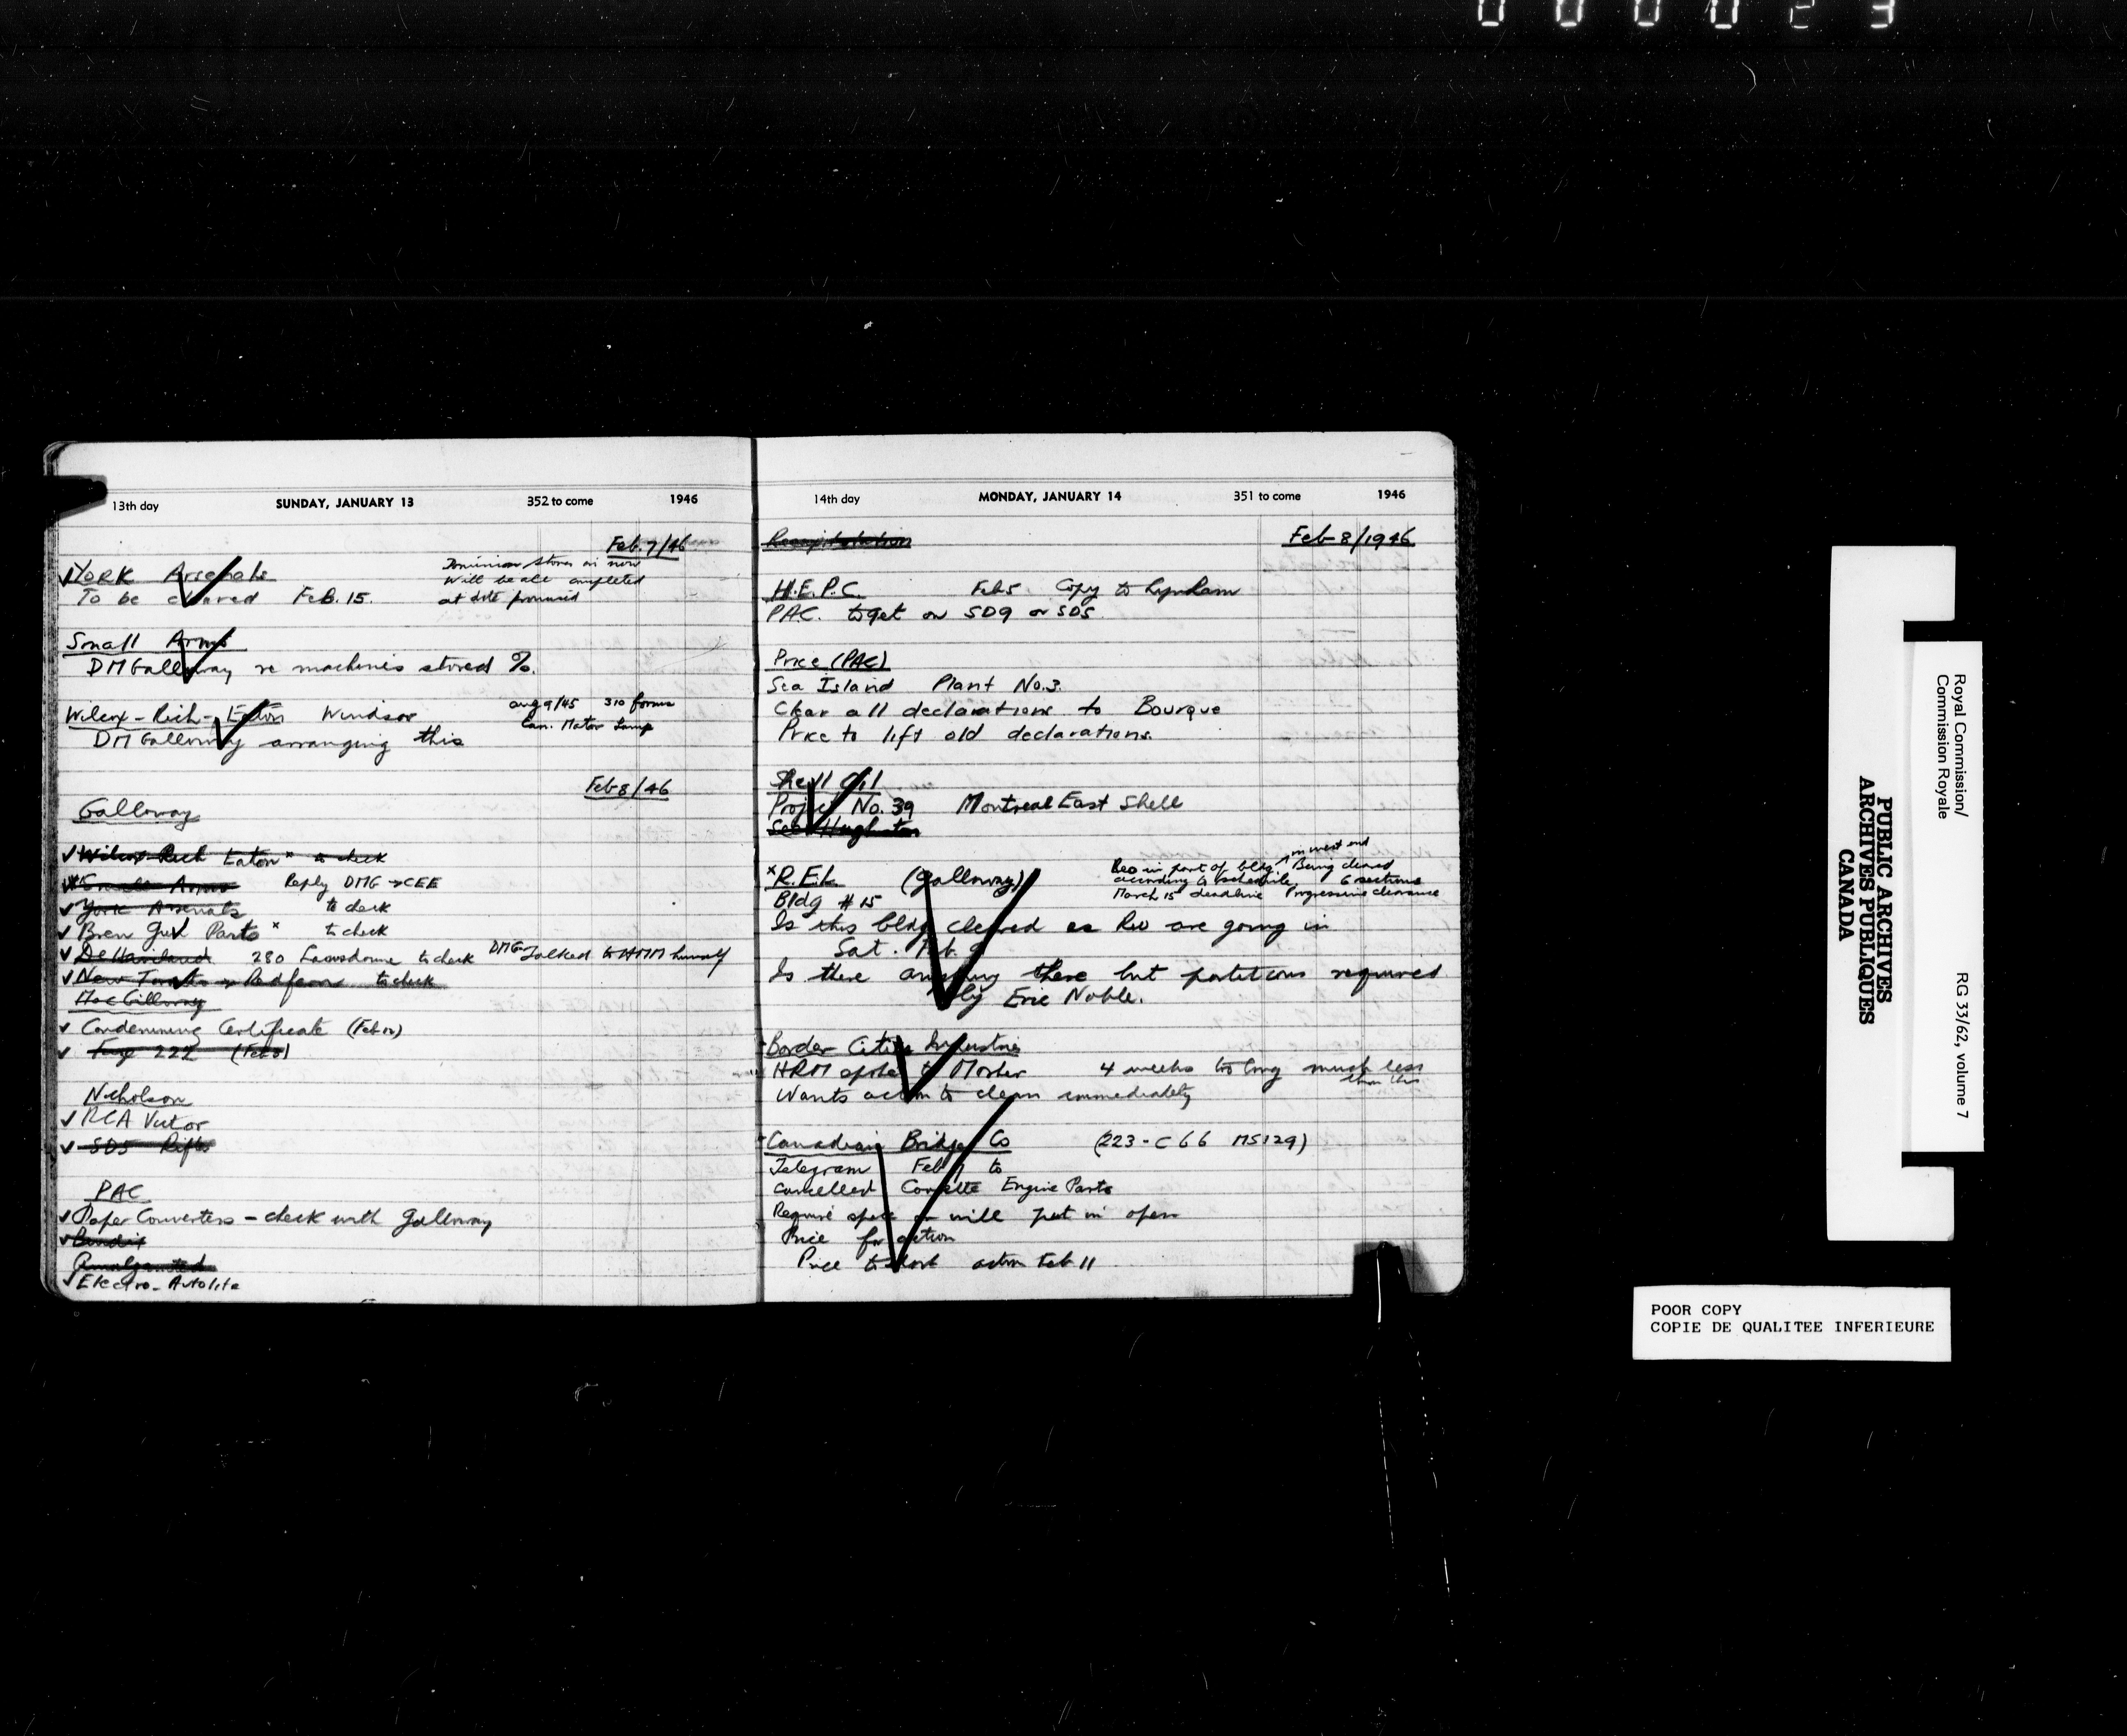 000023
13th day SUNDAY, JANUARY 13 352 to come 1946
Feb. 7/46
York Arsenals
To be cleared Feb. 15.
Dominion Stores in now
Will be all completed
at date promised
Small Arms
DMGalloway re machines stored %.
Wilcox-Rich-Eaton Windsor
Aug 9/45 310 forms
Can. Motor Lamp
DMGalloway arranging this
Feb 8/46
Galloway
Wilcox-Rich Eaton x to check
Small Arms Reply DMG → CEE
York Arsenals to check
Bren Gun Parts x to check
DeHavilland 280 Lansdowne to check DMG talked to HMM himself
New Toronto Redfern to check
MacGillivray
Condemning Certificate (Feb 12)
222 (Feb 8)
Nicholson
RCA Victor
SD5 Rifles
PAC
Paper Converters - check with Galloway
Bendix
Amalgamated
Electro-Autolite
14th day MONDAY, JANUARY 14 351 to come 1946
Recapitulation
Feb 8/1946
H.E.P.C. Feb 5 Copy to Lynham
PAC. to get on SD9 or SD5
Price (PAC)
Sea Island Plant No. 3.
Clear all declarations to Bourque
Price to lift old declarations.
Shell Oil
Project No. 39 Montreal East Shell
x R.E.L. (Galloway)
Reo in part of bldg in west end Being cleared
according to schedule 6 sections
March 15 deadline Progressive clearance
Bldg # 15
Is this bldg cleared as Reo are going in
Sat. Feb. 9
Is there anything there but partitions required
by Eric Noble.
Border Cities Industries
HRM spoke to Mosher 4 weeks too long much less
than this
Wants action to clean immediately
Canadian Bridge Co (223-C66 MS129)
Telegram Feb 7 to
cancelled Corvette Engine Parts
Require space or will put in open
Price for action
Price to start action Feb 11
Royal Commission/
Commission Royale
RG 33/62, volume 7
PUBLIC ARCHIVES
ARCHIVES PUBLIQUES
CANADA
POOR COPY
COPIE DE QUALITEE INFERIEURE